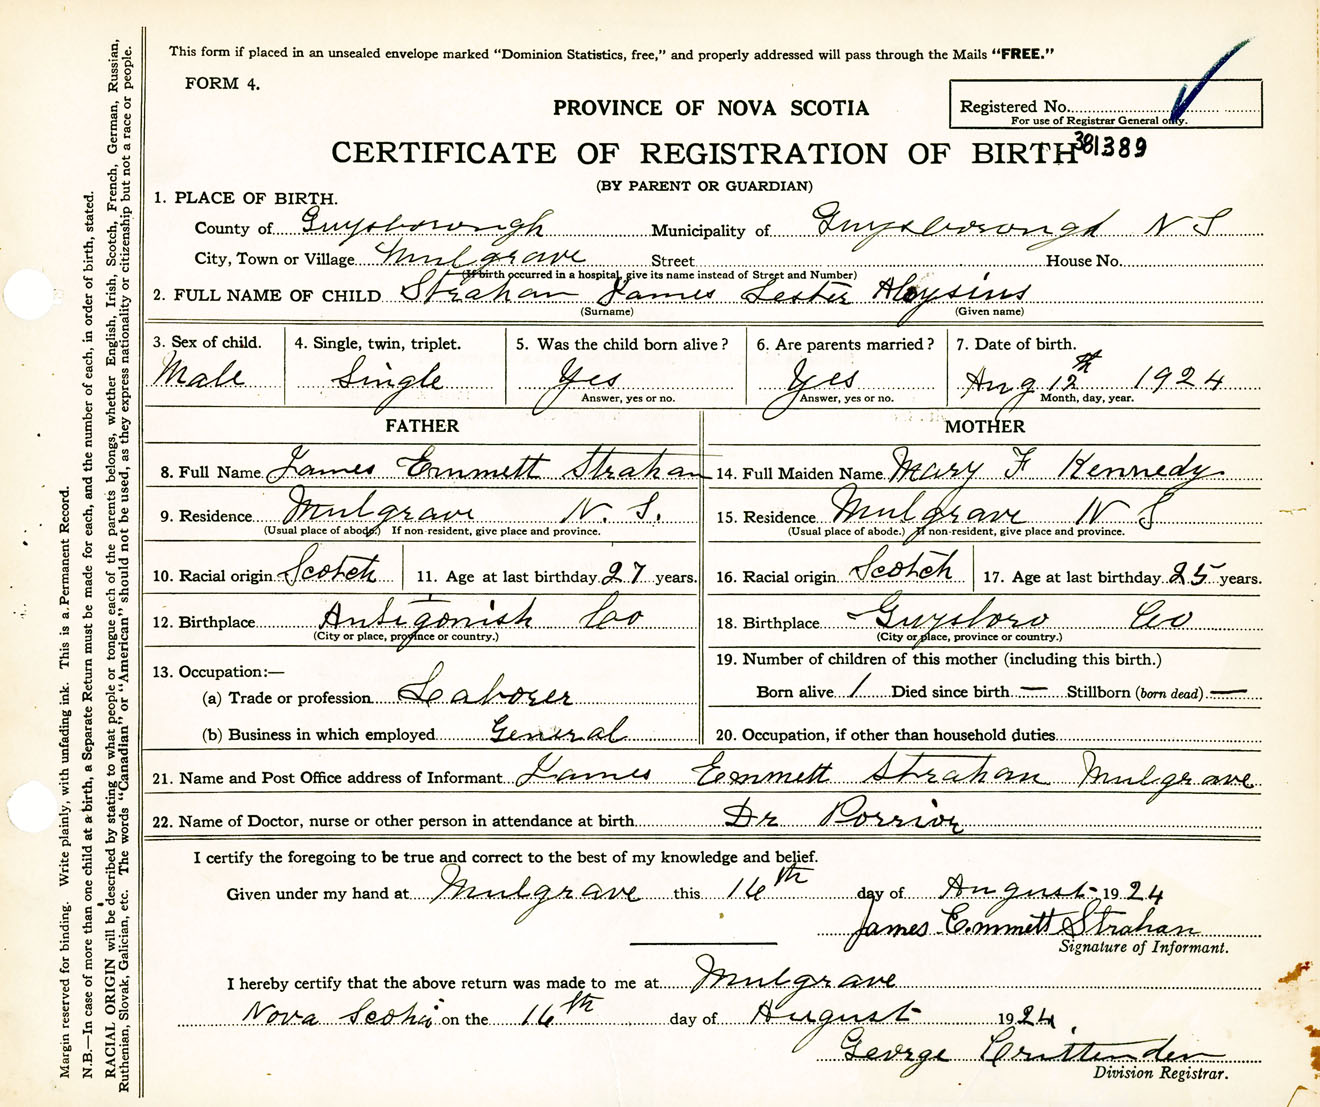 This form if placed in an unsealed envelope marked "Dominion Statistics, free," and properly addressed will pass through the Mails "FREE."
FORM 4.
PROVINCE OF NOVA SCOTIA
Registered No.
For use of Registrar General only.
CERTIFICATE OF REGISTRATION OF BIRTH 381389
(BY PARENT OR GUARDIAN)
1. PLACE OF BIRTH.
County of Guysborough Municipality of Guysborough N S
City, Town or Village Mulgrave Street House No.
(If birth occurred in a hospital, give its name instead of Street and Number)
2. FULL NAME OF CHILD Strahan James Lester Aloysius
(Surname) (Given name)
3. Sex of child. 4. Single, twin, triplet. 5. Was the child born alive? 6. Are parents married? 7. Date of birth.
Male Single Yes Yes Aug 12th 1924
Answer, yes or no. Answer, yes or no. Month, day, year.
FATHER MOTHER
8. Full Name James Emmett Strahan 14. Full Maiden Name Mary F Kennedy
9. Residence Mulgrave N. S. 15. Residence Mulgrave N S
(Usual place of abode.) If non-resident, give place and province. (Usual place of abode.) If non-resident, give place and province.
10. Racial origin Scotch 11. Age at last birthday 27 years. 16. Racial origin Scotch 17. Age at last birthday 25 years.
12. Birthplace Antigonish Co 18. Birthplace Guysboro Co
(City or place, province or country.) (City or place, province or country.)
13. Occupation:— 19. Number of children of this mother (including this birth.)
(a) Trade or profession Laborer Born alive 1 Died since birth — Stillborn (born dead) —
(b) Business in which employed General 20. Occupation, if other than household duties
21. Name and Post Office address of Informant James Emmett Strahan Mulgrave
22. Name of Doctor, nurse or other person in attendance at birth Dr
I certify the foregoing to be true and correct to the best of my knowledge and belief.
Given under my hand at Mulgrave this 16th day of August 1924
James Emmett Strahan
Signature of Informant.
I hereby certify that the above return was made to me at Mulgrave
Nova Scotia on the 16th day of August 1924
George Crittenden
Division Registrar.
Margin reserved for binding. Write plainly, with unfading ink. This is a Permanent Record.
N.B.—In case of more than one child at a birth, a Separate Return must be made for each, and the number of each, in order of birth, stated.
RACIAL ORIGIN will be described by stating to what people or tongue each of the parents belongs, whether English, Irish, Scotch, French, German, Russian,
Ruthenian, Slovak, Galician, etc. The words "Canadian" or "American" should not be used, as they express nationality or citizenship but not a race or people.